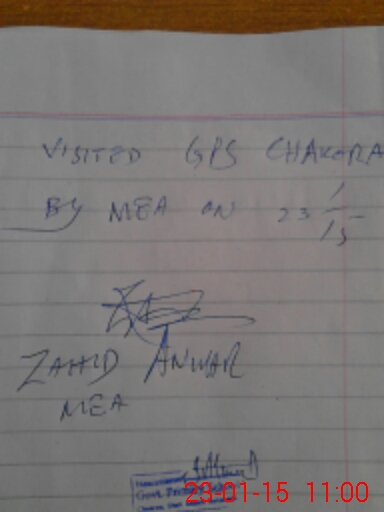 VISITED GPS CHAKORA
BY MEA ON 23/1/15
ZAHID ANWAR
MEA
Govt.
23-01-15 11:00